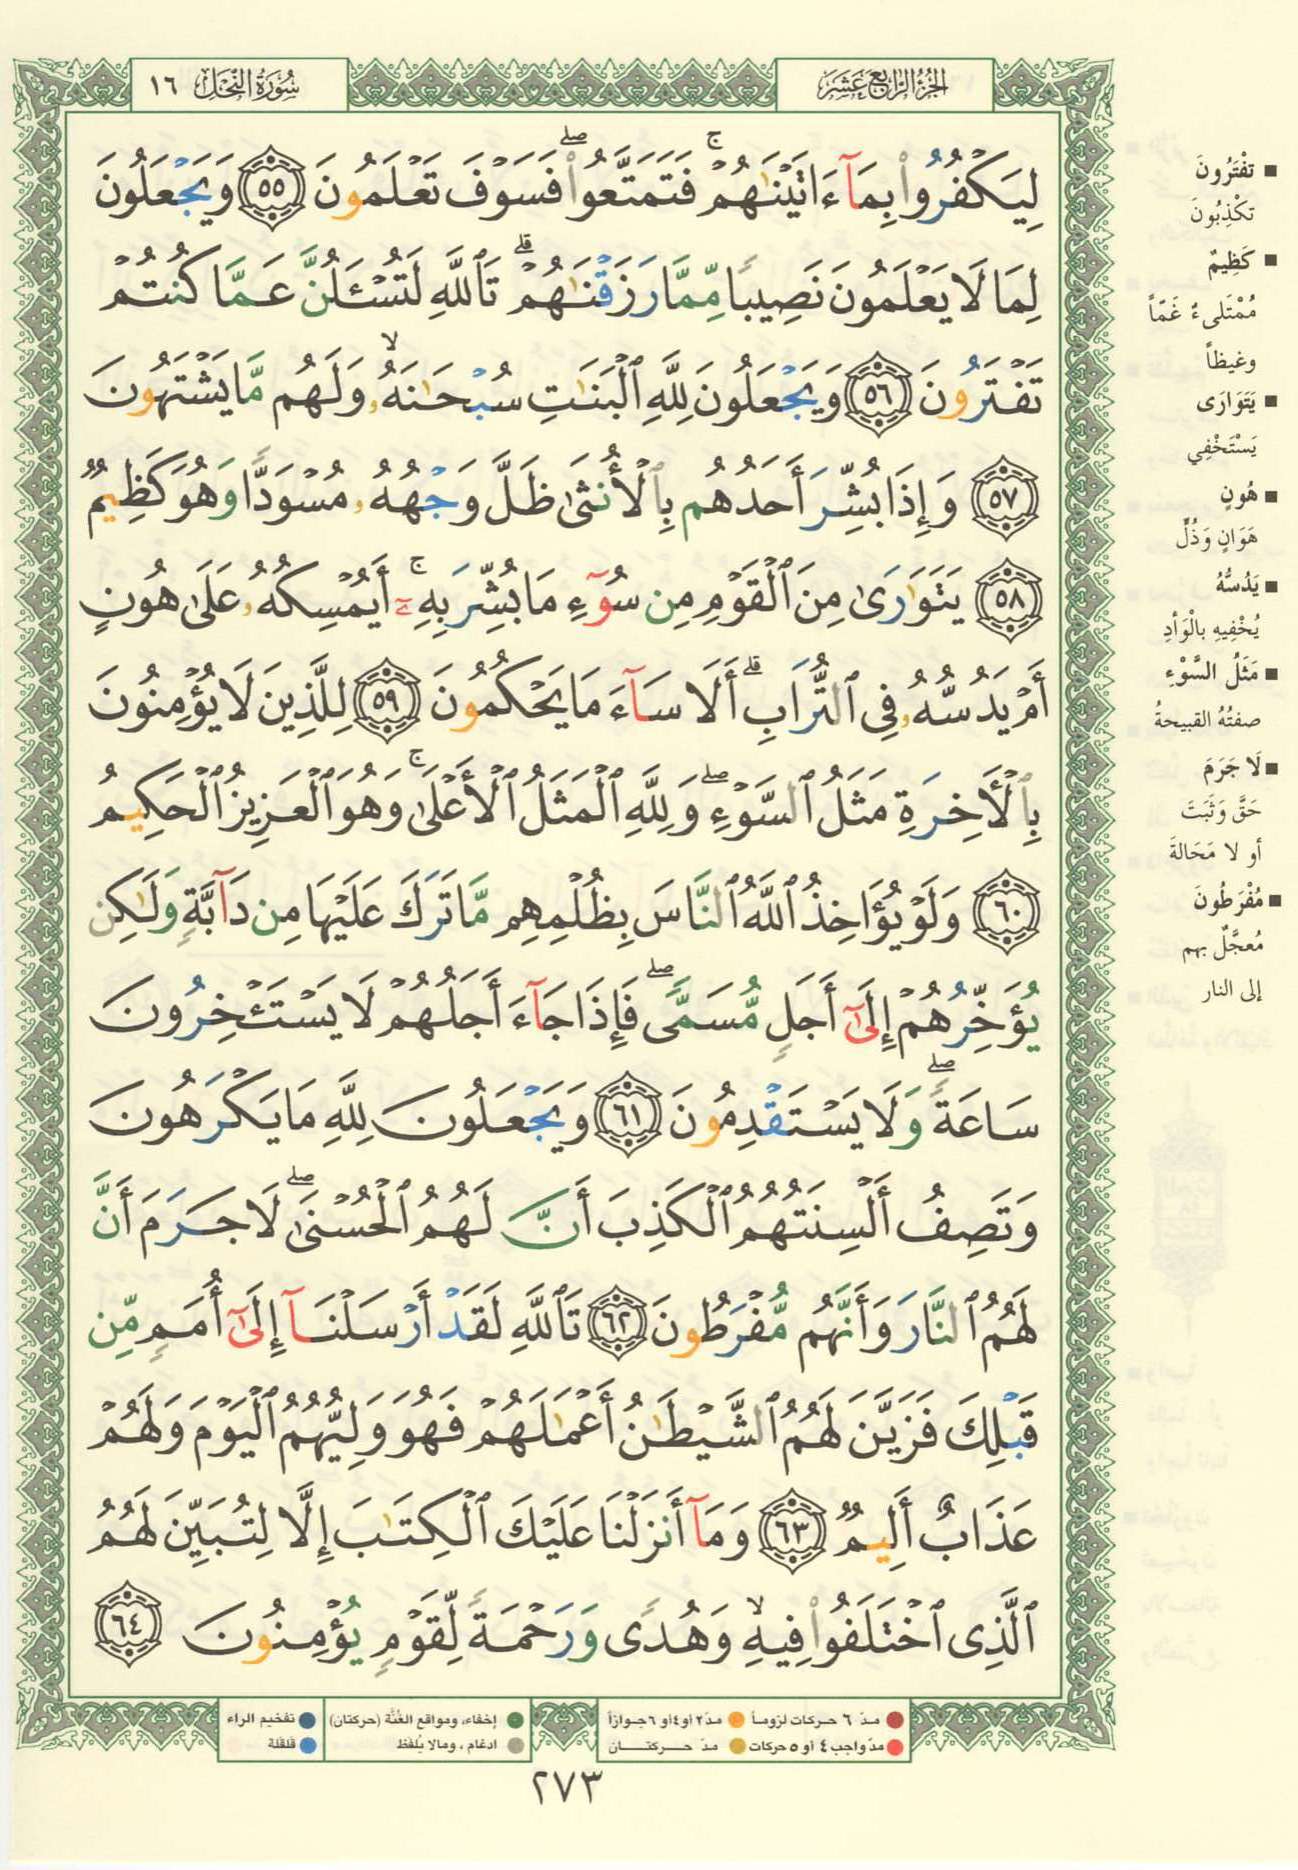 الجزء الرابع عشر
سورة النحل ١٦
لِيَكْفُرُوا۟ بِمَآ ءَاتَيْنَٰهُمْ ۚ فَتَمَتَّعُوا۟ ۖ فَسَوْفَ تَعْلَمُونَ ٥٥ وَيَجْعَلُونَ
لِمَا لَا يَعْلَمُونَ نَصِيبًا مِّمَّا رَزَقْنَٰهُمْ ۗ تَٱللَّهِ لَتُسْـَٔلُنَّ عَمَّا كُنتُمْ
تَفْتَرُونَ ٥٦ وَيَجْعَلُونَ لِلَّهِ ٱلْبَنَٰتِ سُبْحَٰنَهُۥ ۙ وَلَهُم مَّا يَشْتَهُونَ
٥٧ وَإِذَا بُشِّرَ أَحَدُهُم بِٱلْأُنثَىٰ ظَلَّ وَجْهُهُۥ مُسْوَدًّا وَهُوَ كَظِيمٌ
٥٨ يَتَوَٰرَىٰ مِنَ ٱلْقَوْمِ مِن سُوٓءِ مَا بُشِّرَ بِهِۦٓ ۚ أَيُمْسِكُهُۥ عَلَىٰ هُونٍ
أَمْ يَدُسُّهُۥ فِى ٱلتُّرَابِ ۗ أَلَا سَآءَ مَا يَحْكُمُونَ ٥٩ لِلَّذِينَ لَا يُؤْمِنُونَ
بِٱلْـَٔاخِرَةِ مَثَلُ ٱلسَّوْءِ ۖ وَلِلَّهِ ٱلْمَثَلُ ٱلْأَعْلَىٰ ۚ وَهُوَ ٱلْعَزِيزُ ٱلْحَكِيمُ
٦٠ وَلَوْ يُؤَاخِذُ ٱللَّهُ ٱلنَّاسَ بِظُلْمِهِم مَّا تَرَكَ عَلَيْهَا مِن دَآبَّةٍ وَلَٰكِن
يُؤَخِّرُهُمْ إِلَىٰٓ أَجَلٍ مُّسَمًّى ۖ فَإِذَا جَآءَ أَجَلُهُمْ لَا يَسْتَـْٔخِرُونَ
سَاعَةً ۖ وَلَا يَسْتَقْدِمُونَ ٦١ وَيَجْعَلُونَ لِلَّهِ مَا يَكْرَهُونَ
وَتَصِفُ أَلْسِنَتُهُمُ ٱلْكَذِبَ أَنَّ لَهُمُ ٱلْحُسْنَىٰ ۖ لَا جَرَمَ أَنَّ
لَهُمُ ٱلنَّارَ وَأَنَّهُم مُّفْرَطُونَ ٦٢ تَٱللَّهِ لَقَدْ أَرْسَلْنَآ إِلَىٰٓ أُمَمٍ مِّن
قَبْلِكَ فَزَيَّنَ لَهُمُ ٱلشَّيْطَٰنُ أَعْمَٰلَهُمْ فَهُوَ وَلِيُّهُمُ ٱلْيَوْمَ وَلَهُمْ
عَذَابٌ أَلِيمٌ ٦٣ وَمَآ أَنزَلْنَا عَلَيْكَ ٱلْكِتَٰبَ إِلَّا لِتُبَيِّنَ لَهُمُ
ٱلَّذِى ٱخْتَلَفُوا۟ فِيهِ ۙ وَهُدًى وَرَحْمَةً لِّقَوْمٍ يُؤْمِنُونَ ٦٤
تَفْتَرُونَ
تَكْذِبُونَ
كَظِيمٌ
مُمْتَلىءٌ غَمّاً
وغيظاً
يَتَوَارَى
يَسْتَخْفِي
هُونٍ
هَوَانٍ وَذُلٍّ
يَدُسُّهُ
يُخْفِيهِ بالْوَأدِ
مَثَلُ السَّوْءِ
صفتُهُ القبيحةُ
لَا جَرَمَ
حَقَّ وَثَبَتَ
أو لا مَحَالةَ
مُفْرَطُونَ
مُعجَّلٌ بهم
إلى النار
مدّ ٦ حركات لزوماً
مدّ ٢ أو ٤ أو ٦ جوازاً
إخفاء، ومواقع الغُنَّة (حركتان)
تفخيم الراء
مدّ واجب ٤ أو ٥ حركات
مدّ حركتان
ادغام ، ومالا يُلفظ
قلقلة
٢٧٣